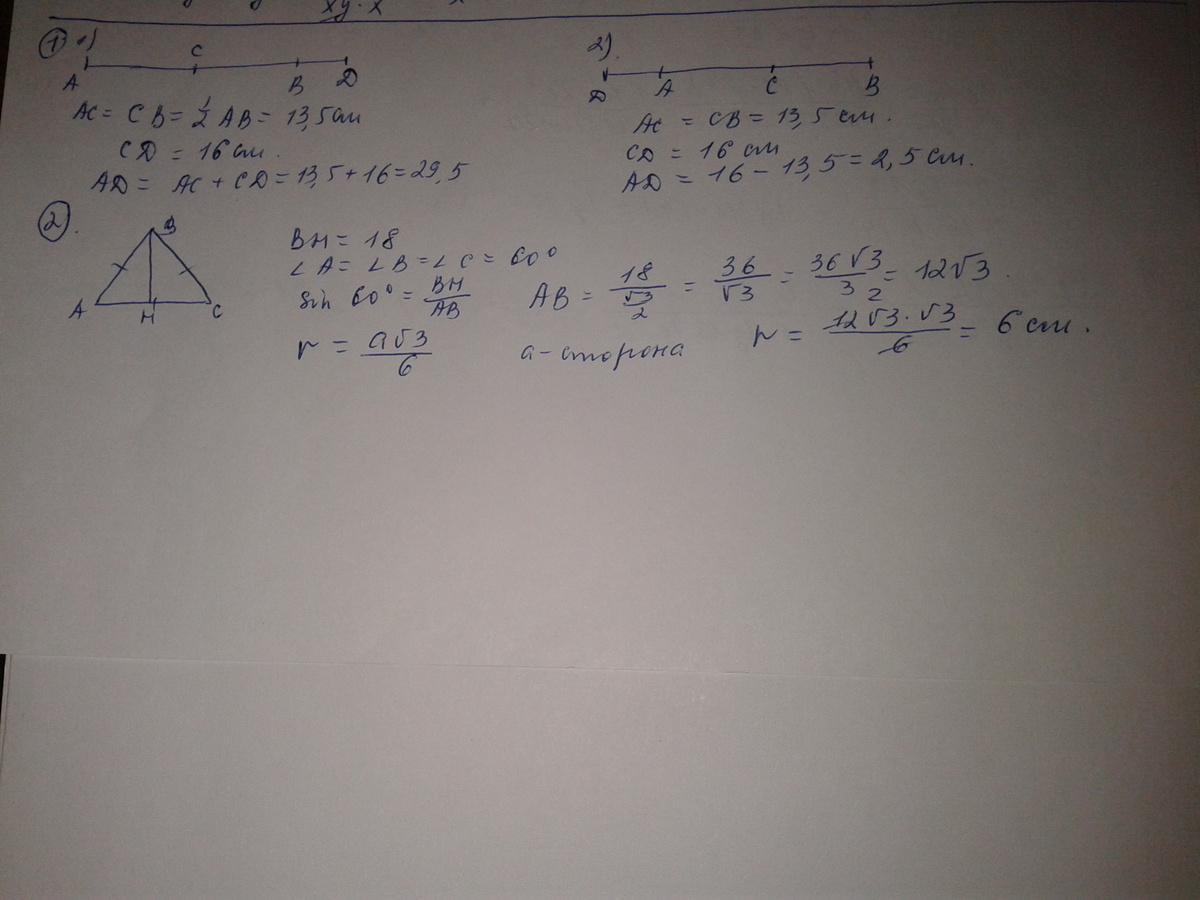 xy · x x
① 1)
A C B D
AC = CB = 1/2 AB = 13,5 см
CD = 16 см.
AD = AC + CD = 13,5 + 16 = 29,5
2).
D A C B
AC = CB = 13,5 см.
CD = 16 см
AD = 16 - 13,5 = 2,5 см.
② .
B
A H C
BH = 18
∠A = ∠B = ∠C = 60°
sin 60° = BH/AB AB = 18/(√3/2) = 36/√3 = 36√3/3 = 12√3.
r = a√3/6 a - сторона r = 12√3 · √3/6 = 6 см.
2